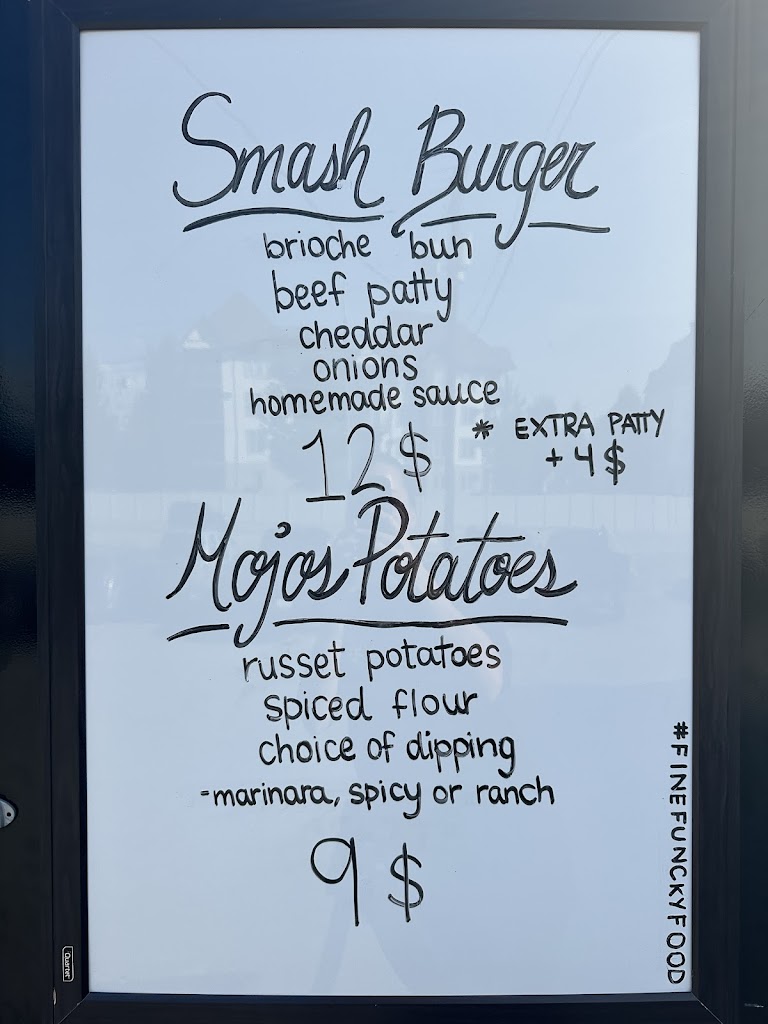 Smash Burger
brioche bun
beef patty
cheddar
onions
homemade sauce
12$
* EXTRA PATTY
+4$
Mojos Potatoes
russet potatoes
spiced flour
choice of dipping
-marinara, spicy or ranch
9$
#FINEFUNCKYFOOD
Quartet